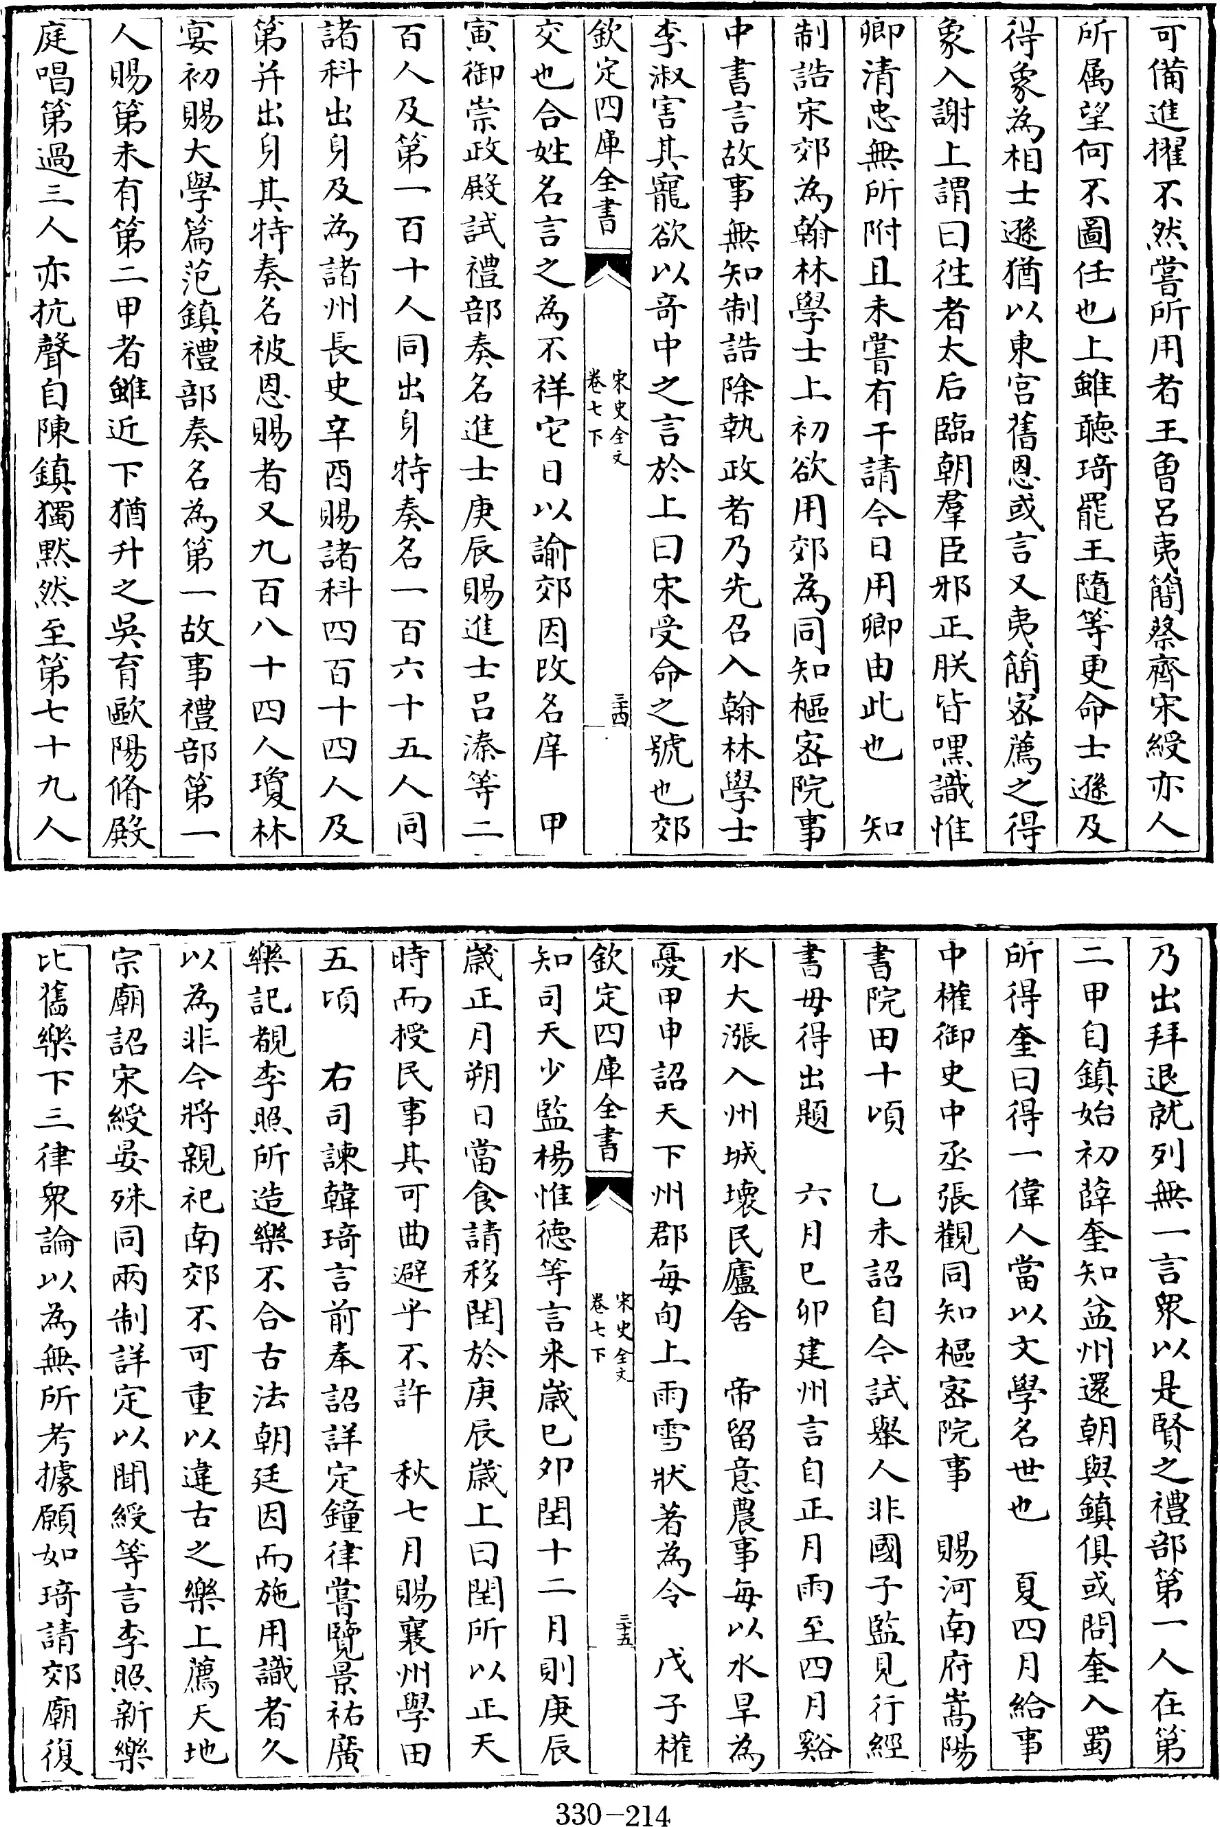 可備進擢不然嘗所用者王曽吕夷簡蔡齊宋綬亦人
所属望何不圖任也上雖聴琦罷王隨等更命士遜及
得象為相士遜猶以東宫舊恩或言又夷簡宻薦之得
象入謝上謂曰徃者太后臨朝羣臣邪正朕皆嘿識惟
卿清忠無所附且未嘗有干請今日用卿由此也　知
制誥宋郊為翰林學士上初欲用郊為同知樞宻院事
中書言故事無知制誥除執政者乃先召入翰林學士
李淑害其寵欲以竒中之言於上曰宋受命之號也郊
欽定四庫全書
宋史全文
卷七下
三十四
交也合姓名言之為不祥它日以諭郊因改名庠　甲
寅御崇政殿試禮部奏名進士庚辰賜進士吕溱等二
百人及第一百十人同出身特奏名一百六十五人同
諸科出身及為諸州長史辛酉賜諸科四百十四人及
第并出身其特奏名被恩賜者又九百八十四人瓊林
宴初賜大學篇范鎮禮部奏名為第一故事禮部第一
人賜第未有第二甲者雖近下猶升之吳育歐陽脩殿
庭唱第過三人亦抗聲自陳鎮獨黙然至第七十九人
乃出拜退就列無一言衆以是賢之禮部第一人在第
二甲自鎮始初薛奎知益州還朝與鎮俱或問奎入蜀
所得奎曰得一偉人當以文學名世也　夏四月給事
中權御史中丞張觀同知樞宻院事　賜河南府嵩陽
書院田十頃　乙未詔自今試舉人非國子監見行經
書毋得出題　六月已卯建州言自正月雨至四月谿
水大漲入州城壊民廬舍　帝留意農事每以水旱為
憂甲申詔天下州郡每旬上雨雪狀著為令　戊子權
欽定四庫全書
宋史全文
卷七下
三十五
知司天少監楊惟徳等言来嵗已夘閏十二月則庚辰
嵗正月朔日當食請移閏於庚辰嵗上曰閏所以正天
時而授民事其可曲避乎不許　秋七月賜襄州學田
五頃　右司諫韓琦言前奉詔詳定鐘律嘗覽景祐廣
樂記覩李照所造樂不合古法朝廷因而施用識者久
以為非今將親祀南郊不可重以違古之樂上薦天地
宗廟詔宋綬晏殊同兩制詳定以聞綬等言李照新樂
比舊樂下三律衆論以為無所考據願如琦請郊廟復
330-214